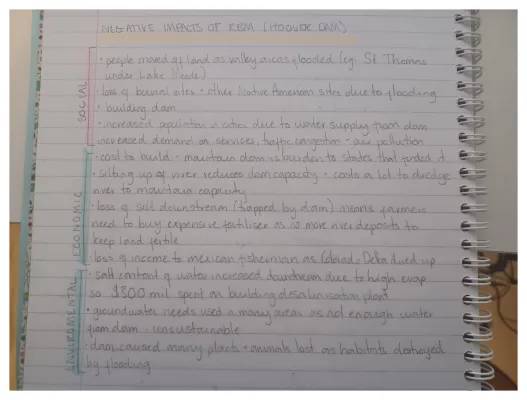 NEGATIVE IMPACTS OF RBM (HOOVER DAM)
SOCIAL
· people moved off land as valley areas flooded (eg. St Thomas
under Lake Meade)
· loss of burial sites + other Native American sites due to flooding
· building dam
· increased population in cities due to water supply from dam
increased demand on services, traffic congestion + air pollution
ECONOMIC
· cost to build + maintain dam is burden to states that funded it
· silting up of river reduces dam capacity + costs a lot to dredge
river to maintain capacity
· loss of silt downstream (trapped by dam) means farmers
need to buy expensive fertiliser as no more river deposits to
keep land fertile
· loss of income to mexican fisherman as Delta dried up
ENVIROMENTAL
· salt content of water increased downstream due to high evap
so $500 mil spent on building desalinisation plant
· groundwater needs used in many areas as not enough water
from dam - unsustainable
· dam caused many plants + animals lost as habitats destroyed
by flooding